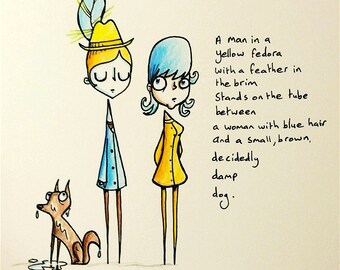 A man in a
yellow fedora
with a feather in
the brim
Stands on the tube
between
a woman with blue hair
and a small, brown,
decidedly
damp
dog.